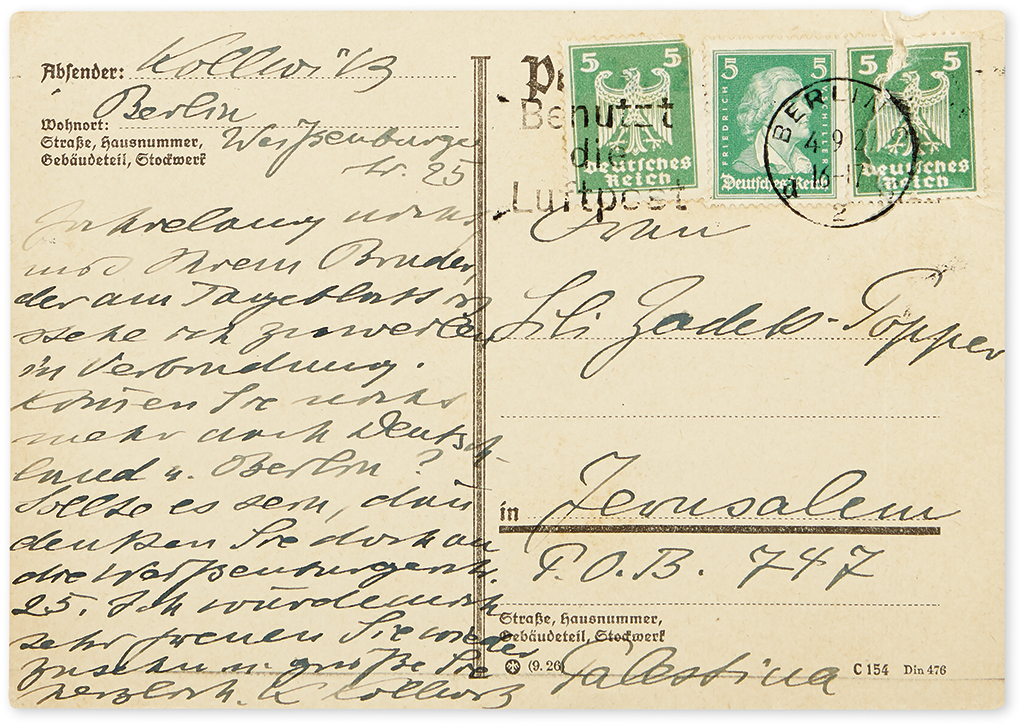 Absender: Kollwitz
Wohnort: Berlin
Straße, Hausnummer,
Gebäudeteil, Stockwerk
Weißenburger
str. 25
mit Ihrem Bruder,
der am Tageblatt ist
stehe ich zuweilen
in Verbindung.
Können Sie nicht
mehr nach Deutsch-
land u. Berlin?
Sollte es sein, dann
denken Sie doch an
die Weißenburgerstr.
25. Ich würde mich
sehr freuen Sie wieder
zusehn u. grüße Sie
herzlich. K Kollwitz
5 5
Deutsches
Reich
5 5
FRIEDRICH SCHILLER
Deutsches Reich
5 5
Deutsches
Reich
Benutzt
die
Luftpost
BERLIN
16-17
2
Frau
Lili Zadek-Popper
in Jerusalem
P.O.B. 747
Straße, Hausnummer,
Gebäudeteil, Stockwerk
(9. 26)
Palestina
C 154 Din 476